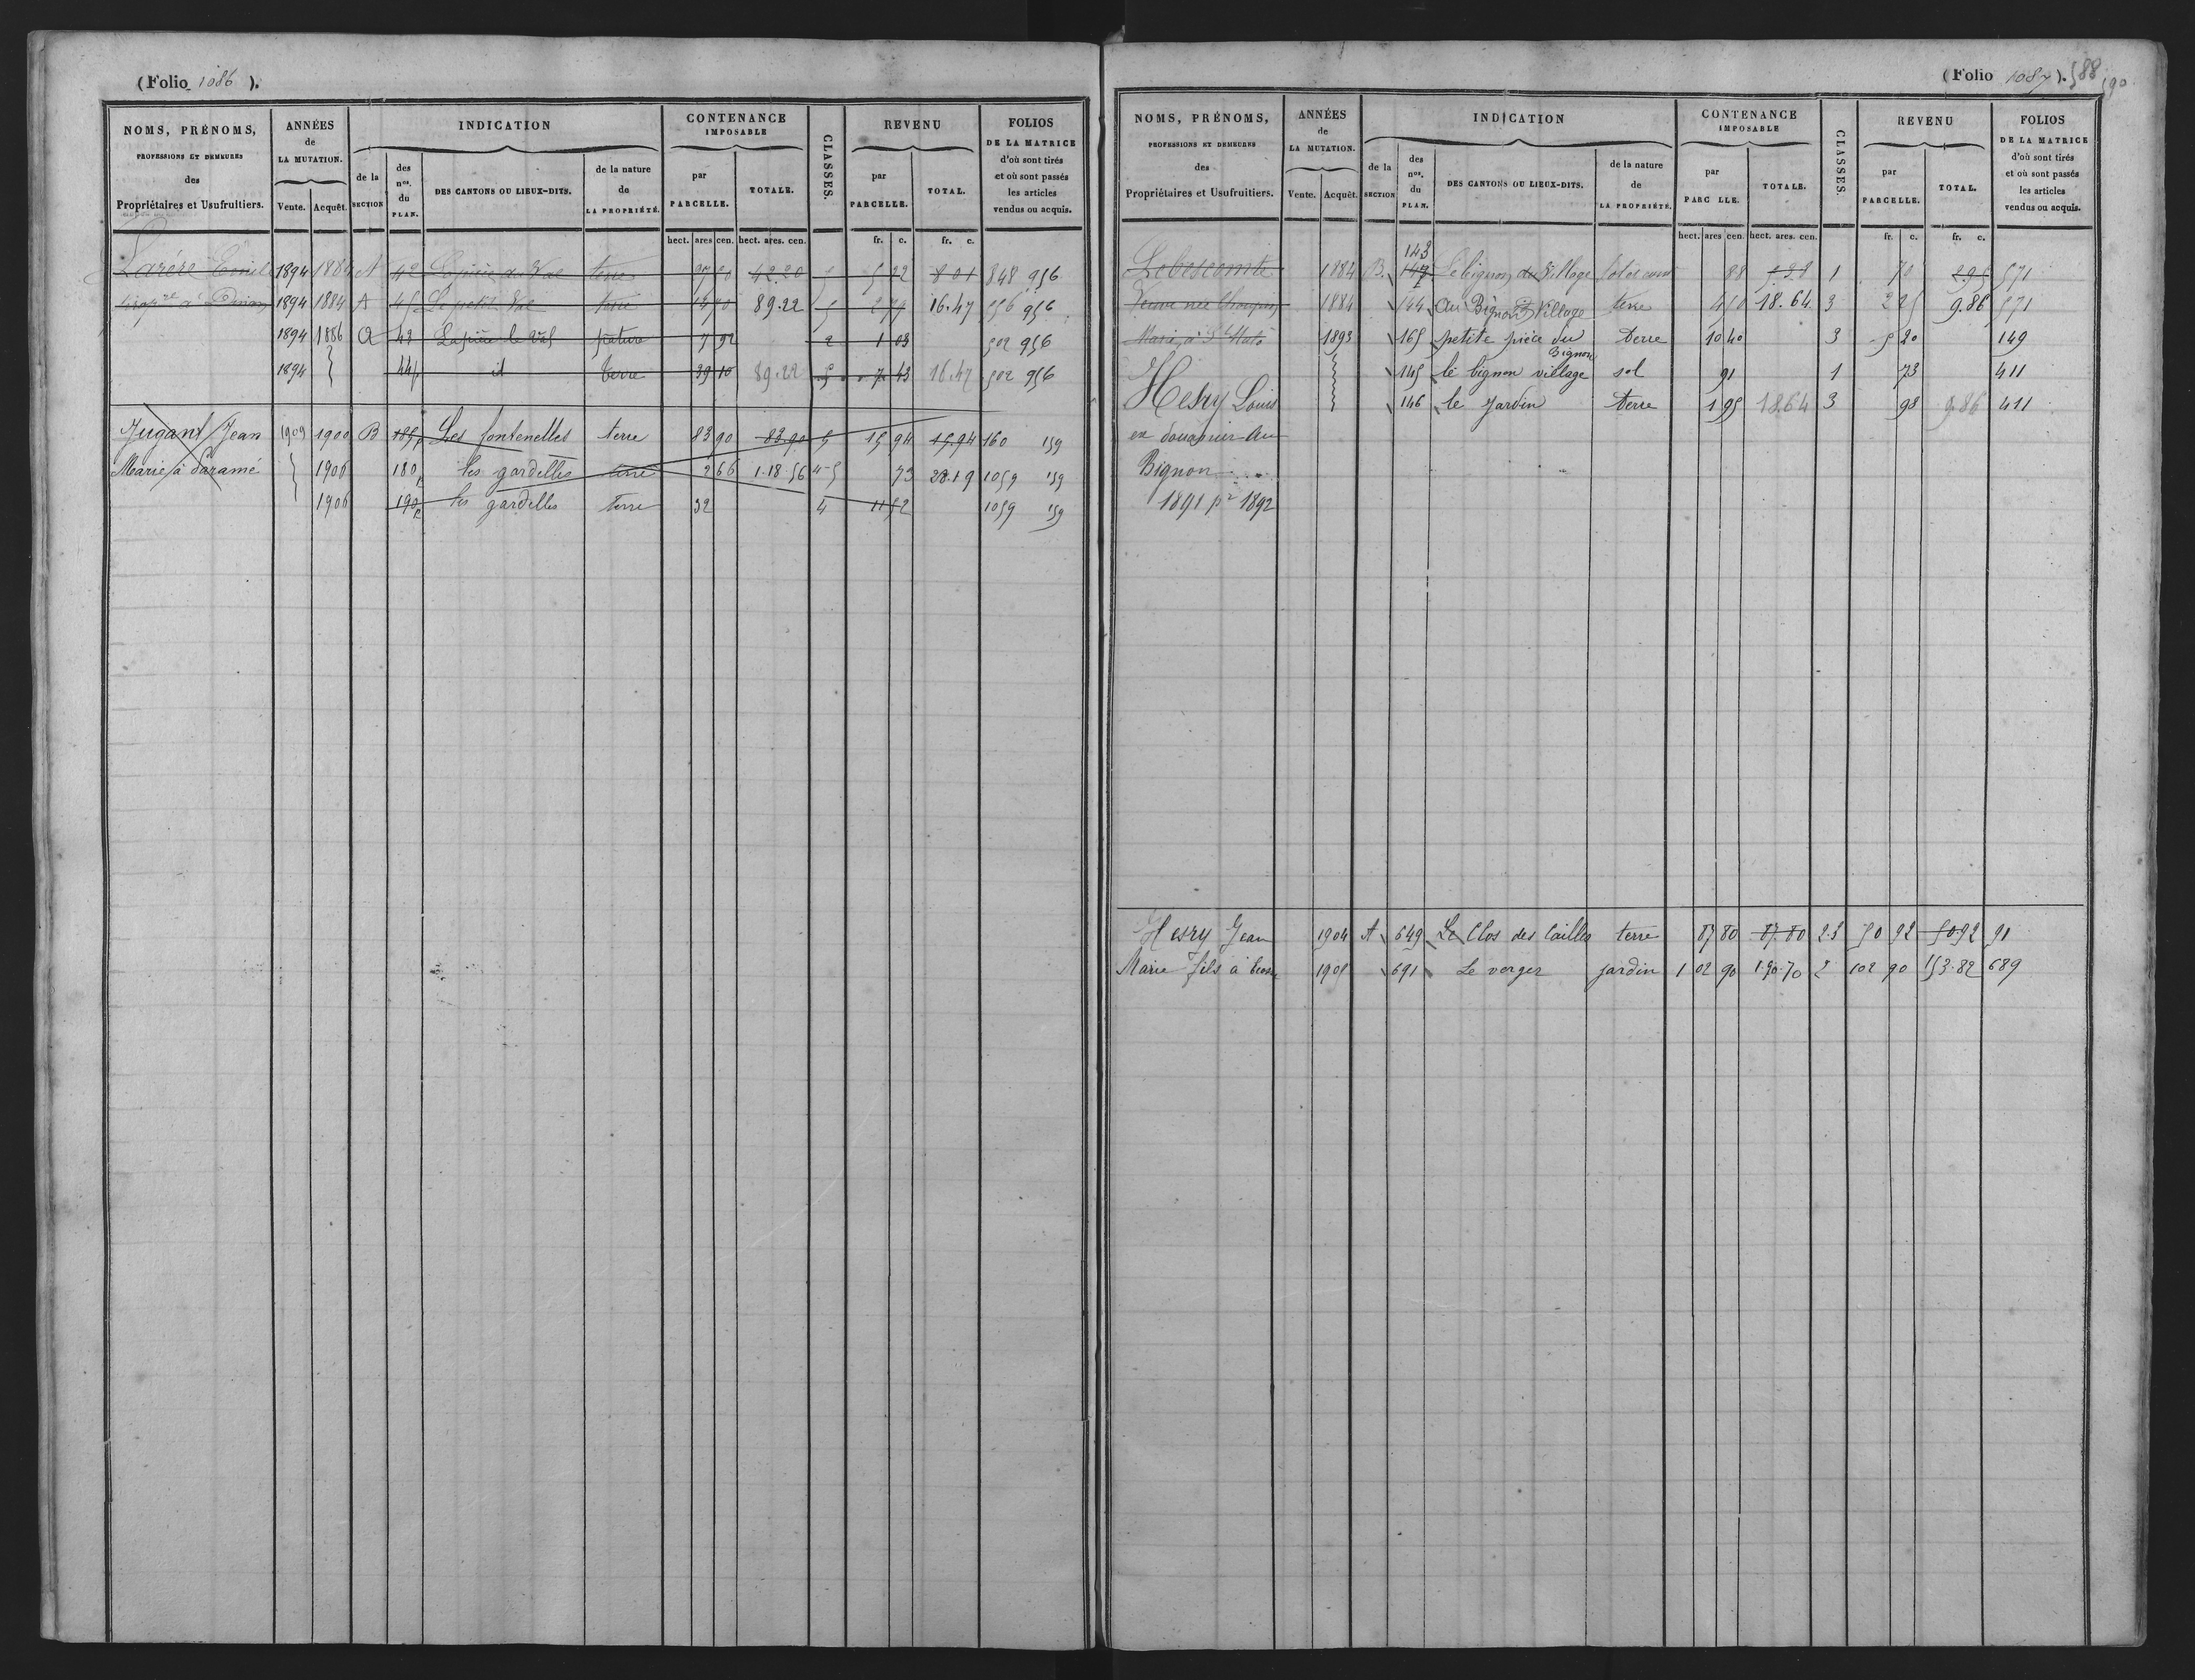 (Folio 1086 ).
NOMS, PRÉNOMS,
PROFESSIONS ET DEMEURES
des
Propriétaires et Usufruitiers.
ANNÉES
de
LA MUTATION.
Vente. Acquêt.
INDICATION
de la
SECTION
des
nos.
du
PLAN.
DES CANTONS OU LIEUX-DITS.
de la nature
de
LA PROPRIÉTÉ.
CONTENANCE
IMPOSABLE
par
PARCELLE.
TOTALE.
CLASSES.
REVENU
par
PARCELLE.
TOTAL.
FOLIOS
DE LA MATRICE
d'où sont tirés
et où sont passés
les articles
vendus ou acquis.
hect. ares cen. hect. ares. cen. fr. c. fr. c.
Larére Emile 1894 1884 A 42 du Val terre 42.20 5 5 22 8 01 848 956
à Dinan 1894 1884 A 45 Le petit Val terre 89.22 5 2 79 16.47 556 956
1894 1886 A 43 le Val pature 7 92 2 1 03 502 956
1894 44p id terre 39 10 89.22 5 7 43 16.47 502 956
Jugant Jean 1909 1900 B 185p Les fontenelles terre 83 90 83.90 5 15 94 15.94 160 159
Marie à Paramé 1906 180p les gardelles terre 2 66 1.18.56 4-5 73 28.19 1059 159
1906 190p les gardelles terre 32 4 11 52 1059 159
(Folio 1087 ). 588 590
NOMS, PRÉNOMS,
PROFESSIONS ET DEMEURES
des
Propriétaires et Usufruitiers.
ANNÉES
de
LA MUTATION.
Vente. Acquêt.
INDICATION
de la
SECTION
des
nos.
du
PLAN.
DES CANTONS OU LIEUX-DITS.
de la nature
de
LA PROPRIÉTÉ.
CONTENANCE
IMPOSABLE
par
PARC LLE.
TOTALE.
CLASSES.
REVENU
par
PARCELLE.
TOTAL.
FOLIOS
DE LA MATRICE
d'où sont tirés
et où sont passés
les articles
vendus ou acquis.
hect. ares cen. hect. ares. cen. fr. c. fr. c.
143
Lebescomte 1884 B. 147 Le bignon du Village 88 5.38 1 70 2.95 571
Veuve née 1884 144 Au Bignon Village terre 4 50 18.64 3 2 25 9.86 571
Marie, à St Malo 1893 165 petite pièce du terre 10 40 3 5 20 149
Bignon
145 le bignon village sol 91 1 73 411
Hesry Louis 146 le Jardin terre 1 95 18.64 3 98 9.86 411
ex douanier Au
Bignon
1891 pr 1892
Hesry Jean 1904 A 649 Le Clos des Cailles terre 87 80 87.80 2.3 50 92 50.92 91
Marie fils à 1905 691 Le verger jardin 1 02 90 1.90.70 2 102 90 153.82 689